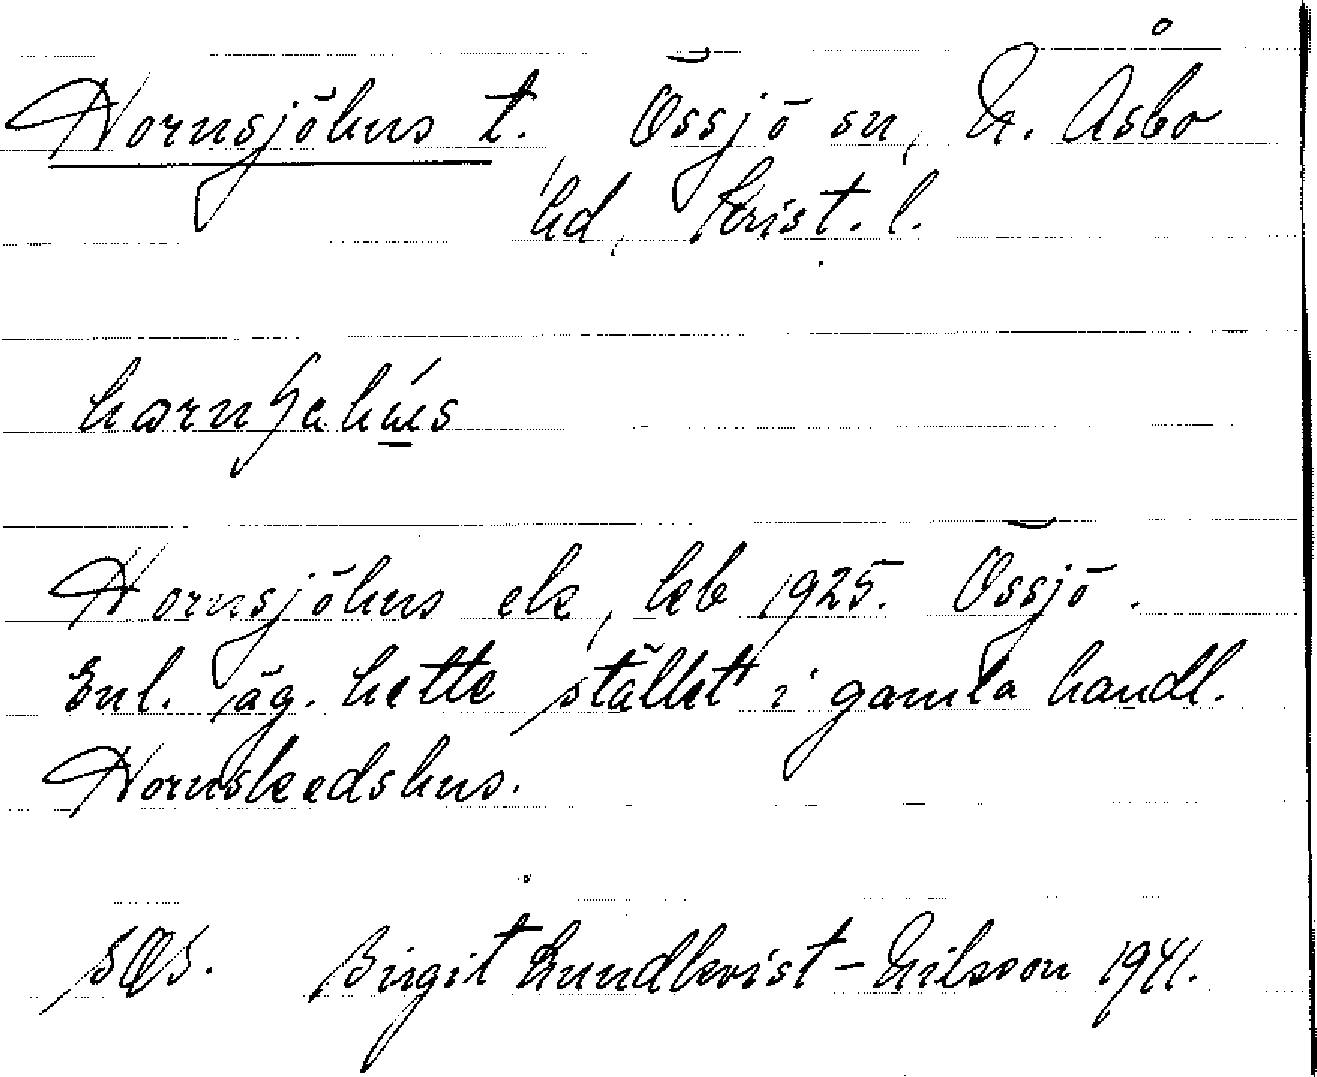 Hornsjöhus t. Össjö sn, N. Åsbo
hd, Krist. l.
Hornsjöhus ek, kb 1925. Össjö.
Enl. äg. hette stället i gamla handl.
Hornskedshus.
SOS. Birgit Lundkvist-Nilsson 1941.